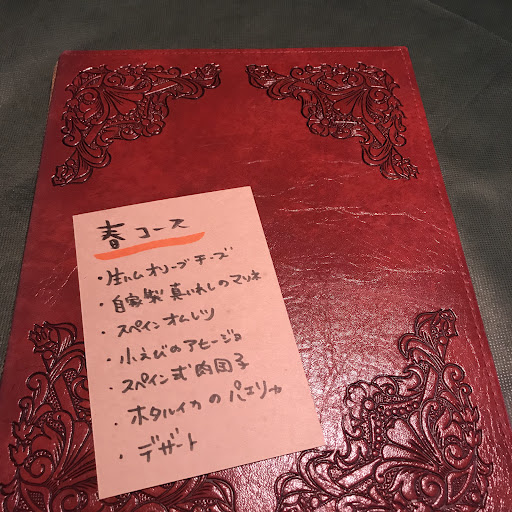 春コース
・生ハムオリーブチーズ
・自家製真いわしのマリネ
・スペインオムレツ
・小えびのアヒージョ
・スペイン式肉団子
・ホタルイカのパエリャ
・デザート